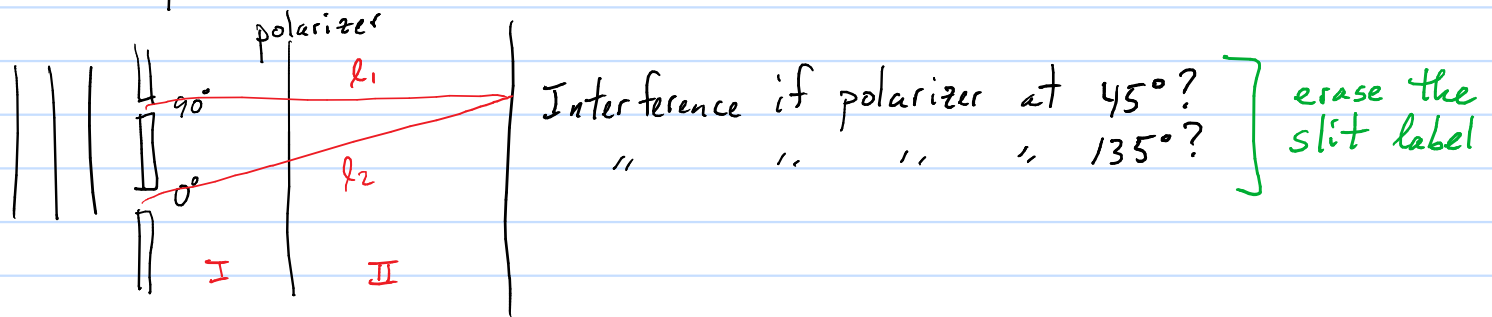 polarizer
l₁
90°
Interference if polarizer at 45°?
" " " " 135°?
erase the
slit label
l₂
0°
I II